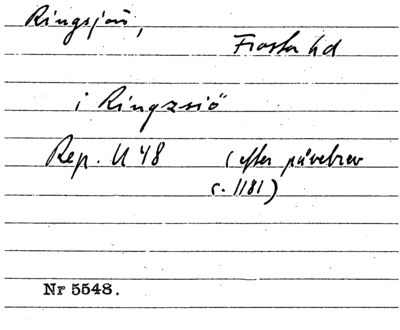 Ringsjön,
Frosta hd
i Ringzsiö
Rep. U 48 (efter påvebrev
c. 1181)
Nr 5548.